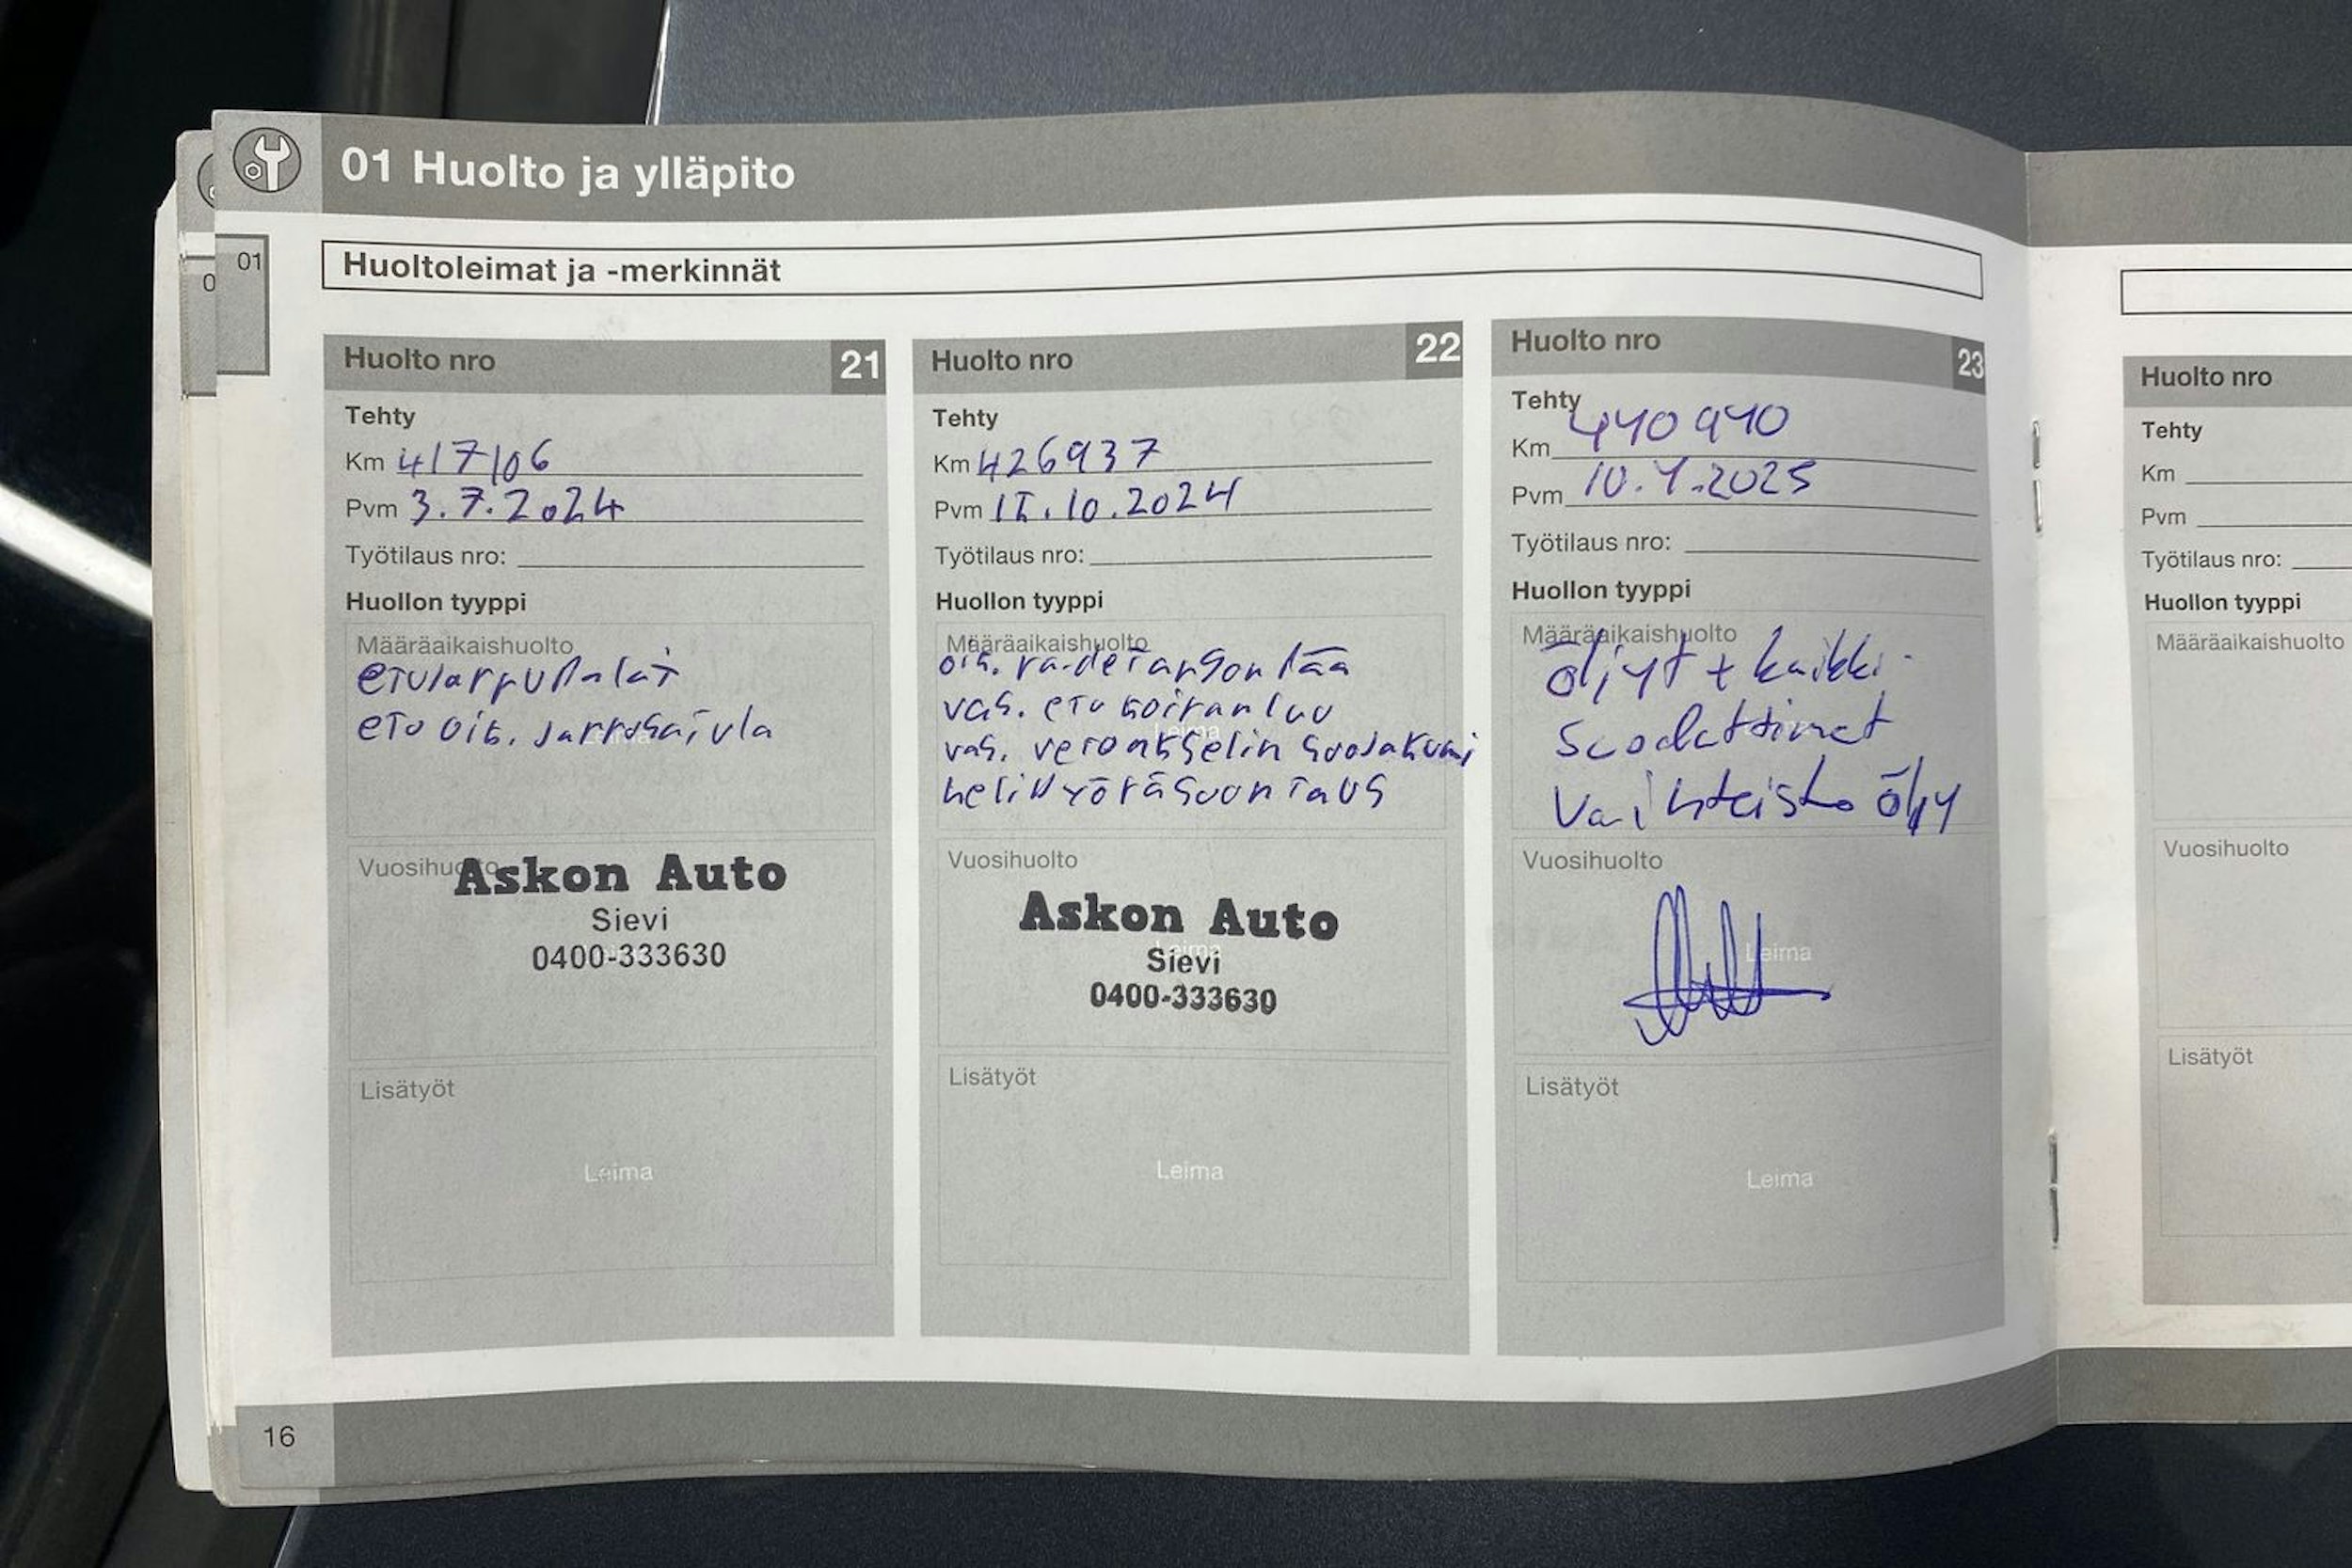 01 Huolto ja ylläpito
01
0
Huoltoleimat ja -merkinnät
Huolto nro 21
Tehty
Km 417106
Pvm 3.7.2024
Työtilaus nro:
Huollon tyyppi
Määräaikaishuolto
eto oik. jarrusatula
Vuosihuolto
Askon Auto
Sievi
0400-333630
Lisätyöt
Leima
Huolto nro 22
Tehty
Km 426937
Pvm .10.2024
Työtilaus nro:
Huollon tyyppi
Määräaikaishuolto
oik. raidetangon pää
vas. etu koiranluu
vas. vetoakselin suojakumi
nelipyöräsuuntaus
Vuosihuolto
Leima
Askon Auto
Sievi
0400-333630
Lisätyöt
Leima
Huolto nro 23
Tehty
Km 440940
Pvm 10.4.2025
Työtilaus nro:
Huollon tyyppi
Määräaikaishuolto
öljyt + kaikki
suodattimet
Vaihteisto öljy
Vuosihuolto
Leima
Lisätyöt
Leima
Huolto nro
Tehty
Km
Pvm
Työtilaus nro:
Huollon tyyppi
Määräaikaishuolto
Vuosihuolto
Lisätyöt
16